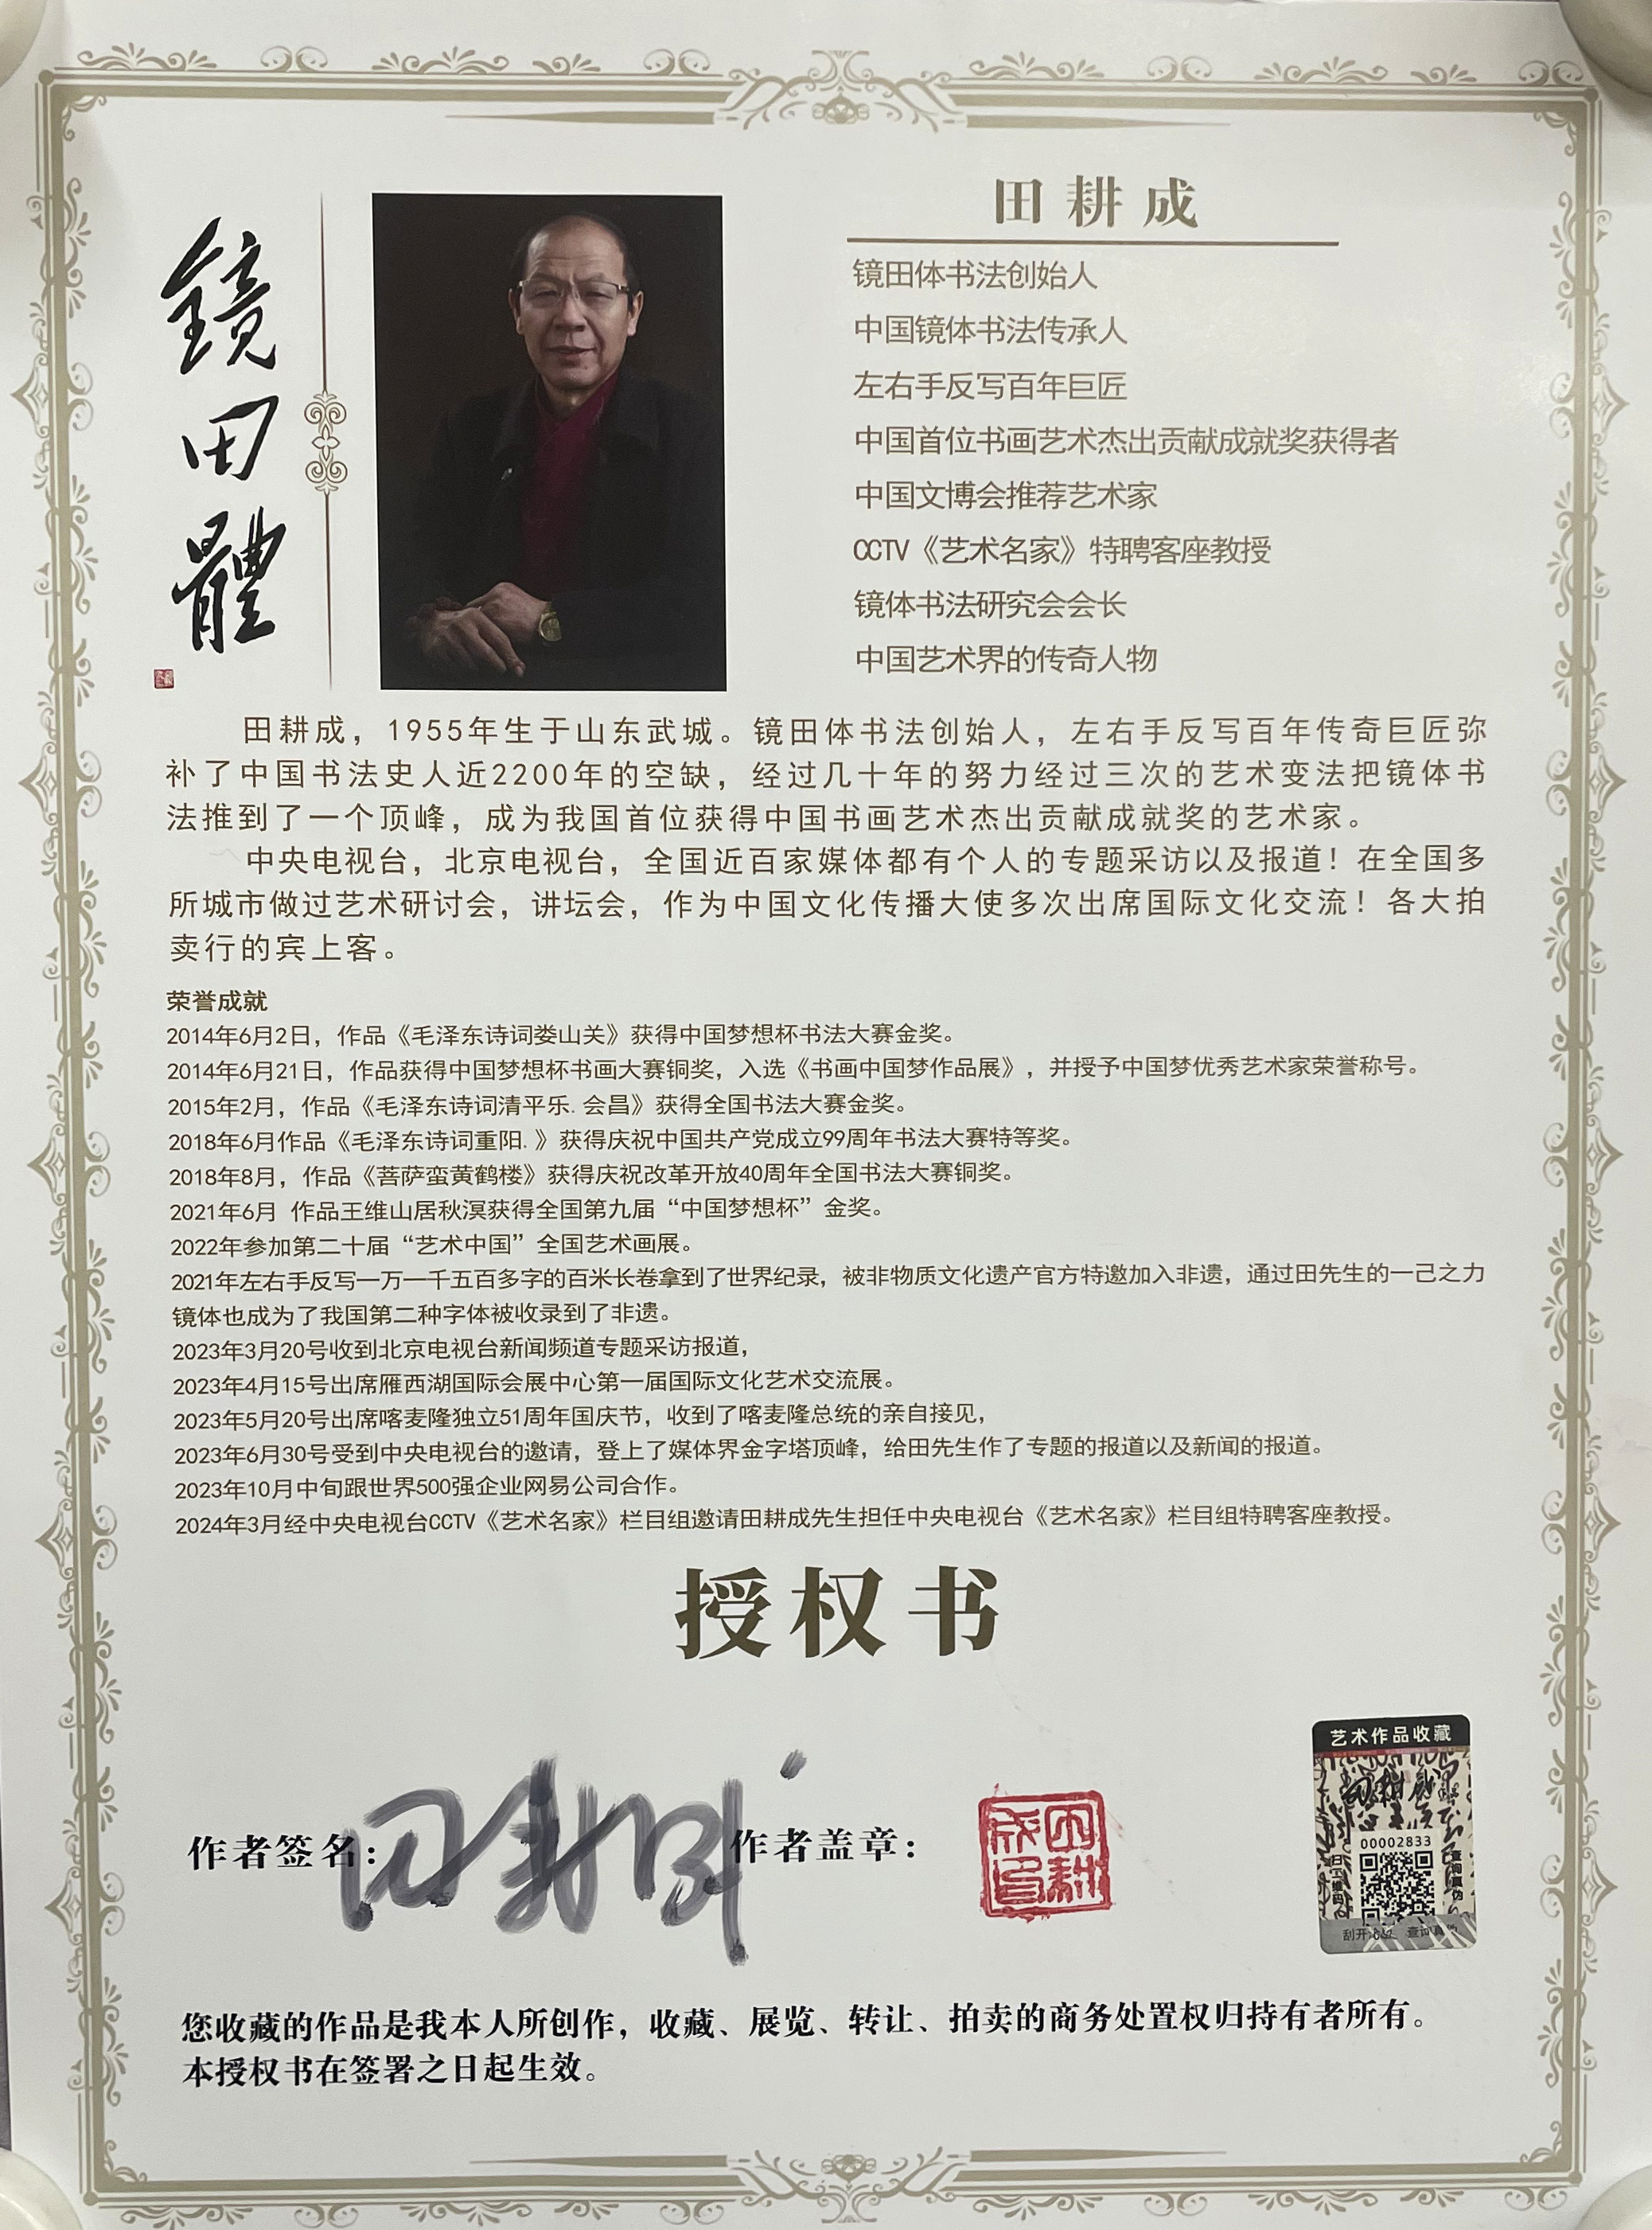 鏡田體
田耕成
镜田体书法创始人
中国镜体书法传承人
左右手反写百年巨匠
中国首位书画艺术杰出贡献成就奖获得者
中国文博会推荐艺术家
CCTV《艺术名家》特聘客座教授
镜体书法研究会会长
中国艺术界的传奇人物
田耕成，1955年生于山东武城。镜田体书法创始人，左右手反写百年传奇巨匠弥
补了中国书法史人近2200年的空缺，经过几十年的努力经过三次的艺术变法把镜体书
法推到了一个顶峰，成为我国首位获得中国书画艺术杰出贡献成就奖的艺术家。
中央电视台，北京电视台，全国近百家媒体都有个人的专题采访以及报道！在全国多
所城市做过艺术研讨会，讲坛会，作为中国文化传播大使多次出席国际文化交流！各大拍
卖行的宾上客。
荣誉成就
2014年6月2日，作品《毛泽东诗词娄山关》获得中国梦想杯书法大赛金奖。
2014年6月21日，作品获得中国梦想杯书画大赛铜奖，入选《书画中国梦作品展》，并授予中国梦优秀艺术家荣誉称号。
2015年2月，作品《毛泽东诗词清平乐.会昌》获得全国书法大赛金奖。
2018年6月作品《毛泽东诗词重阳.》获得庆祝中国共产党成立99周年书法大赛特等奖。
2018年8月，作品《菩萨蛮黄鹤楼》获得庆祝改革开放40周年全国书法大赛铜奖。
2021年6月 作品王维山居秋溟获得全国第九届“中国梦想杯”金奖。
2022年参加第二十届“艺术中国”全国艺术画展。
2021年左右手反写一万一千五百多字的百米长卷拿到了世界纪录，被非物质文化遗产官方特邀加入非遗，通过田先生的一己之力
镜体也成为了我国第二种字体被收录到了非遗。
2023年3月20号收到北京电视台新闻频道专题采访报道，
2023年4月15号出席雁西湖国际会展中心第一届国际文化艺术交流展。
2023年5月20号出席喀麦隆独立51周年国庆节，收到了喀麦隆总统的亲自接见，
2023年6月30号受到中央电视台的邀请，登上了媒体界金字塔顶峰，给田先生作了专题的报道以及新闻的报道。
2023年10月中旬跟世界500强企业网易公司合作。
2024年3月经中央电视台CCTV《艺术名家》栏目组邀请田耕成先生担任中央电视台《艺术名家》栏目组特聘客座教授。
授权书
艺术作品收藏
00002833
扫二维码
查询真伪
作者签名：田耕成
作者盖章：
田耕成印
您收藏的作品是我本人所创作，收藏、展览、转让、拍卖的商务处置权归持有者所有。
本授权书在签署之日起生效。